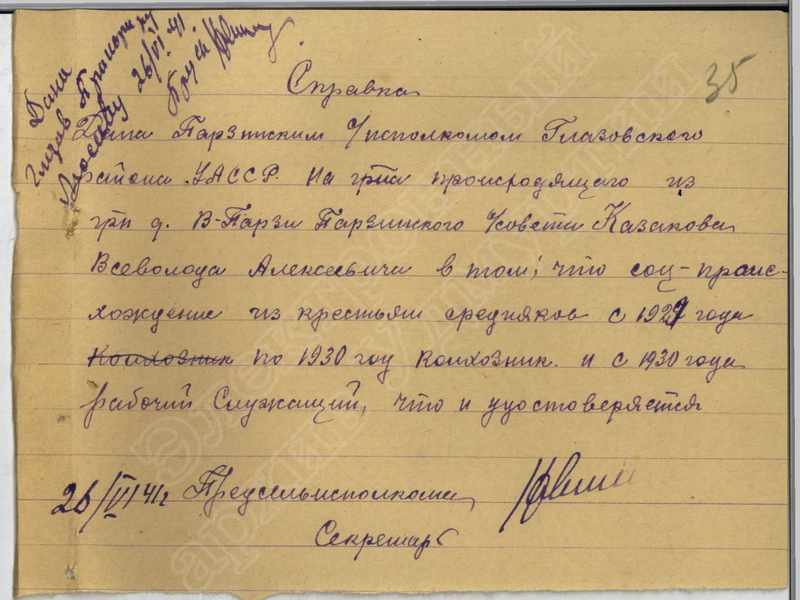 Дана
26/VI 41
35
Справка
Дана Парзинским с/исполкомом Глазовского
района УАССР. На гр-на происходящего из
гр-н д. В-Парзи Парзинского с/совета Казакова
Всеволода Алексеевича в том, что соц-проис-
хождение из крестьян средняков с 1929 года
Колхозник по 1930 год колхозник. и с 1930 года
рабочий Служащий, что и удостоверяется
26/VI 41г Предсельисполкома
Секретарь